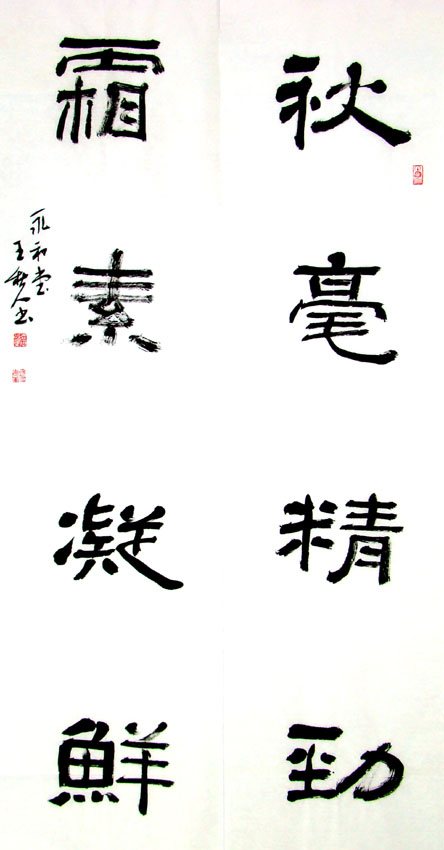 秋毫精勁
霜素凝鮮
永和堂
王秋人书